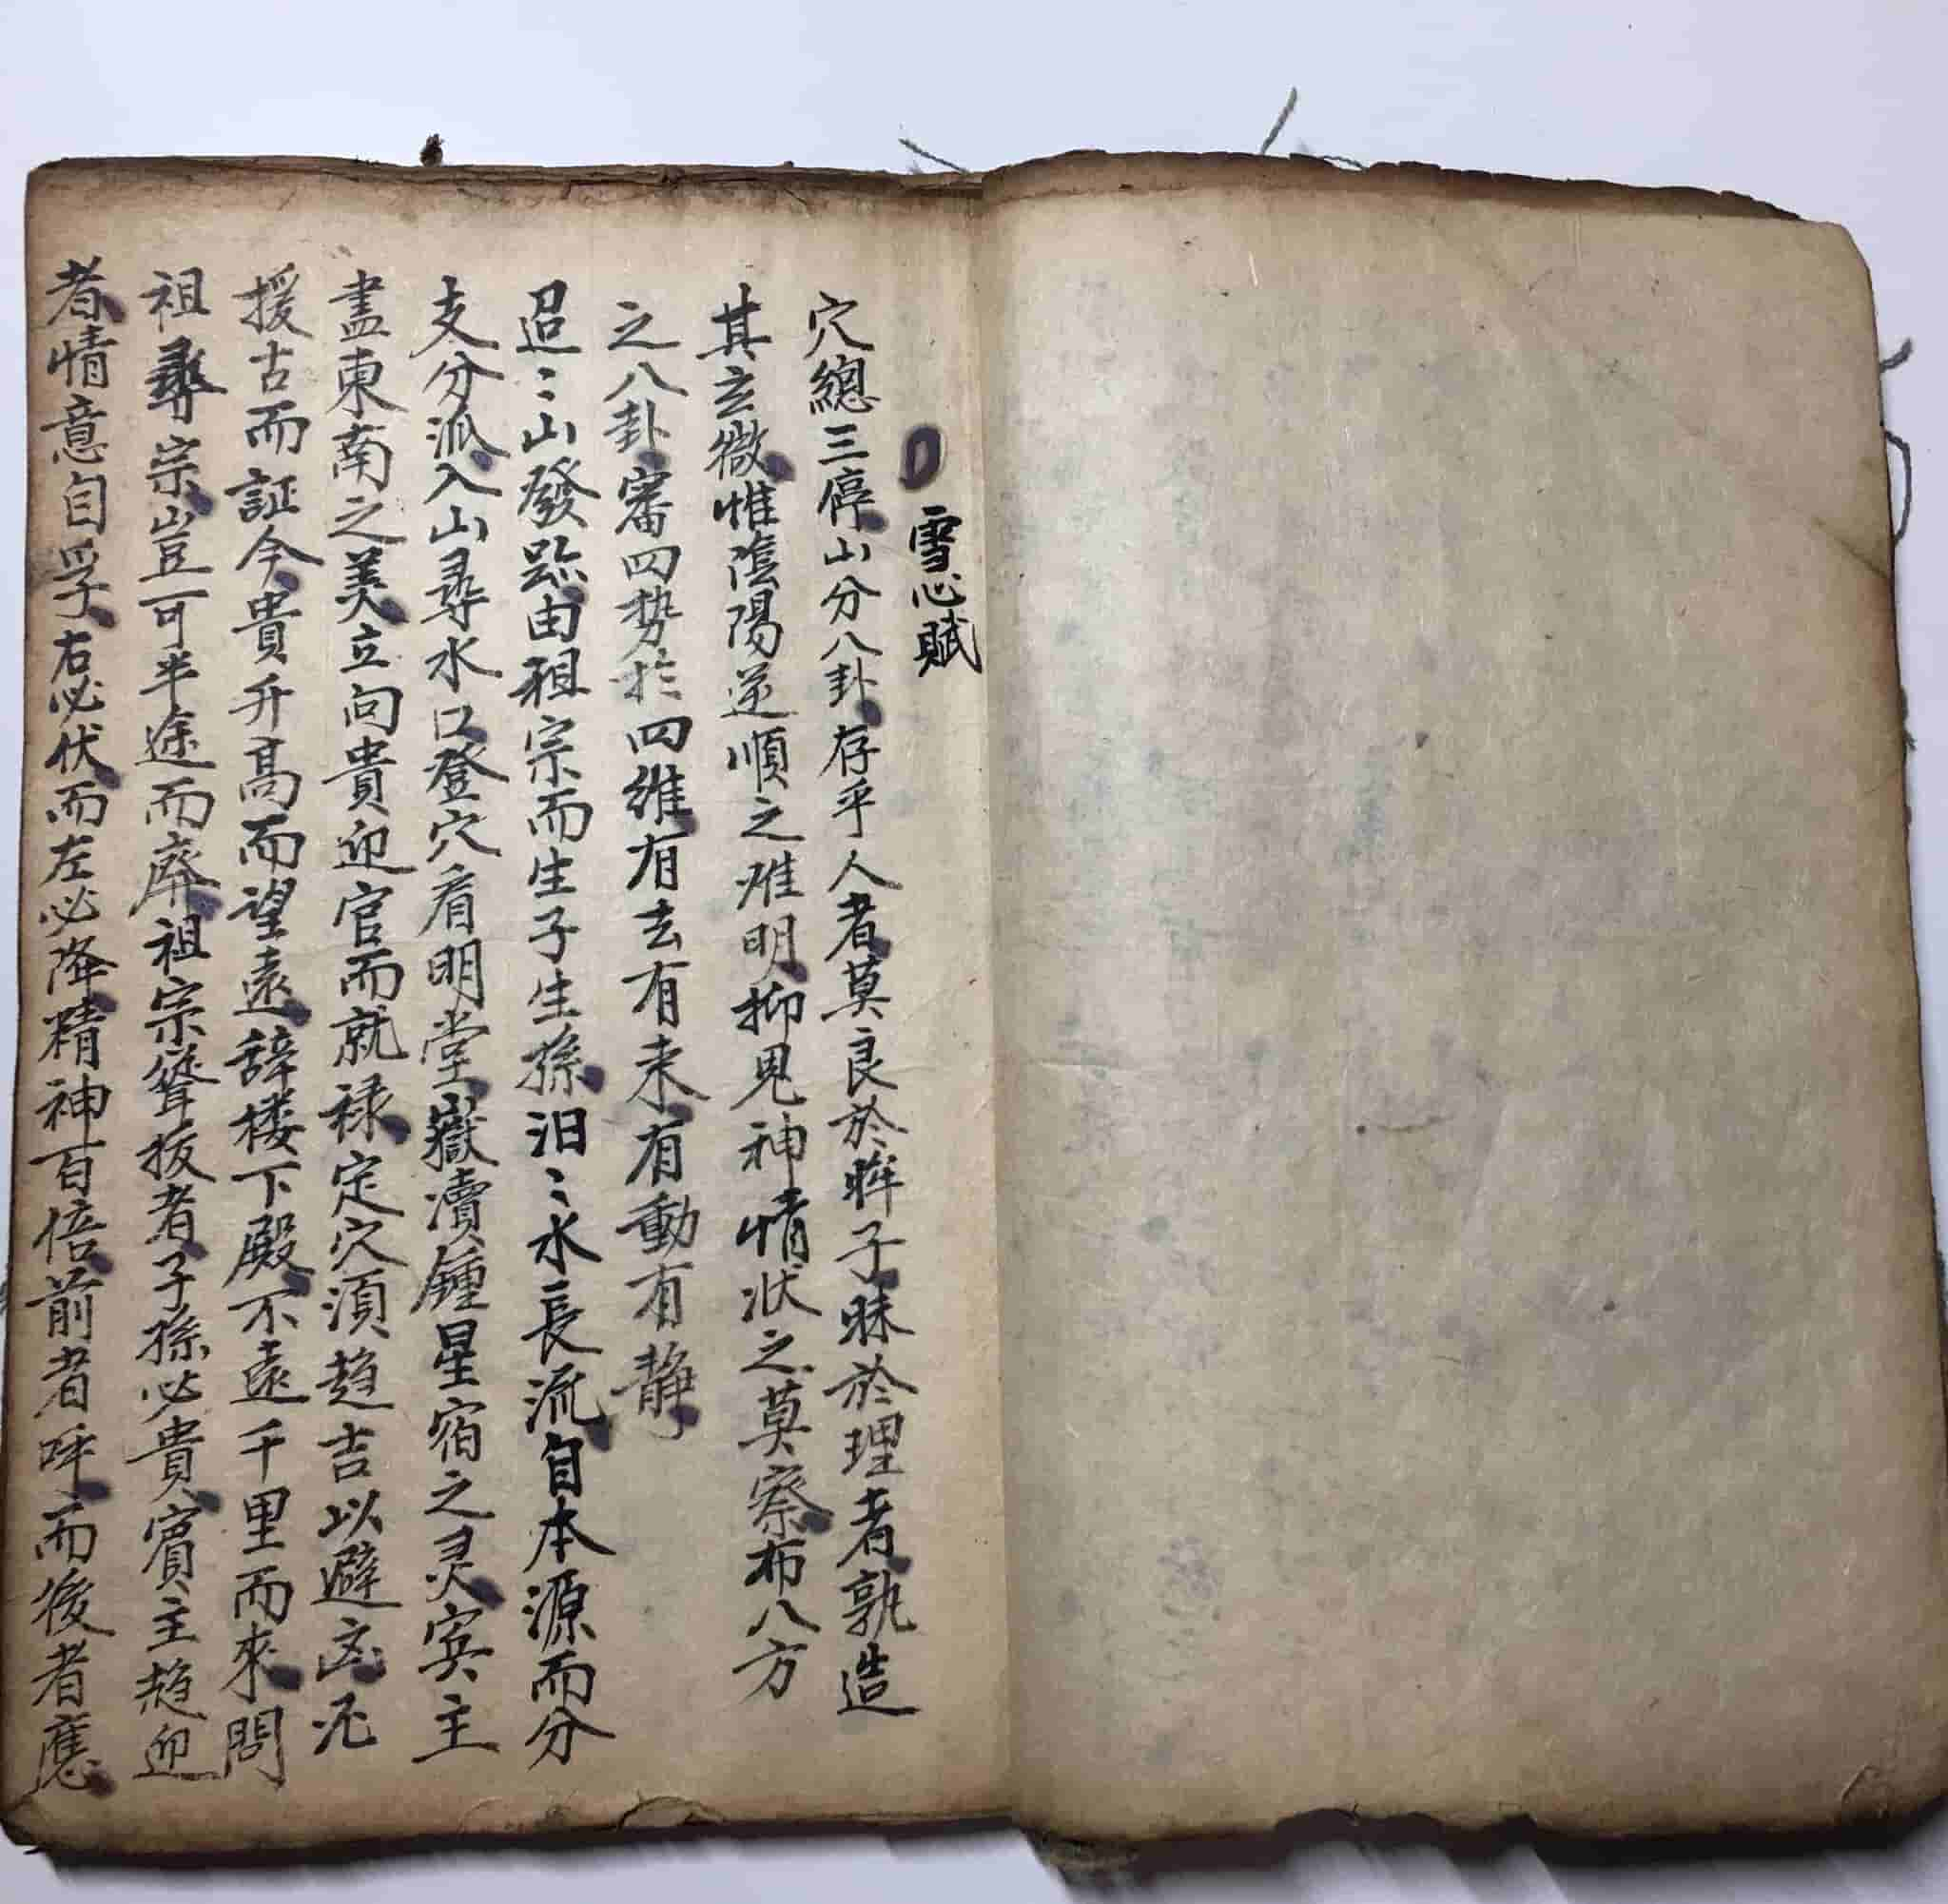 雪心賦
穴總三停山分八卦存乎人者莫良於眸子昧於理者孰造
其玄微惟陰陽逆順之难明抑鬼神情状之莫察布八方
之八卦審四势於四維有去有来有動有静
迢〻山發跡由祖宗而生子生孫汨〻水長流自本源而分
支分派入山尋水口登穴看明堂嶽瀆鍾星宿之灵賓主
盡東南之美立向貴迎官而就禄定穴須趋吉以避凶况
援古而証今貴升高而望遠辞楼下殿不遠千里而來問
祖尋宗豈可半途而廢祖宗聳拔者子孫必貴賓主趋迎
者情意自孚右必伏而左必降精神百倍前者呼而後者應